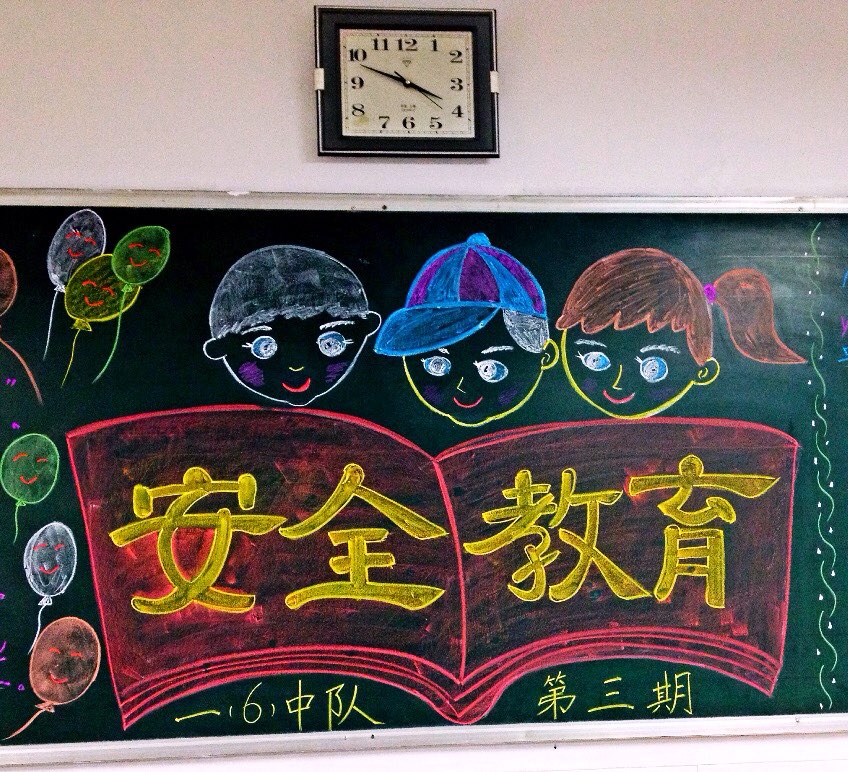 11 12 1
10 2
9 3
8 4
7 6 5
安全教育
一(6)中队 第三期